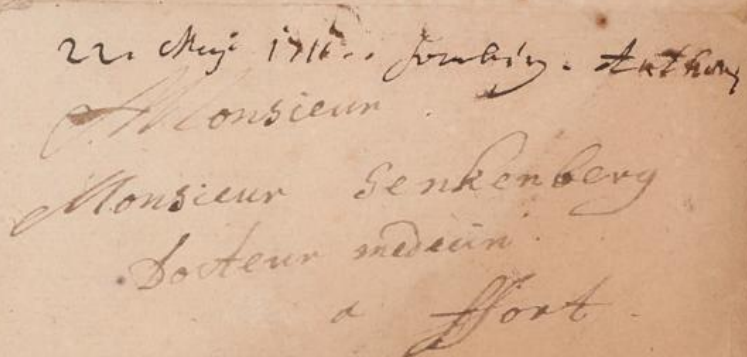 22. Maji 1716.. Anthony
Monsieur
Monsieur Senkenberg
Docteur medecin
a ffort.